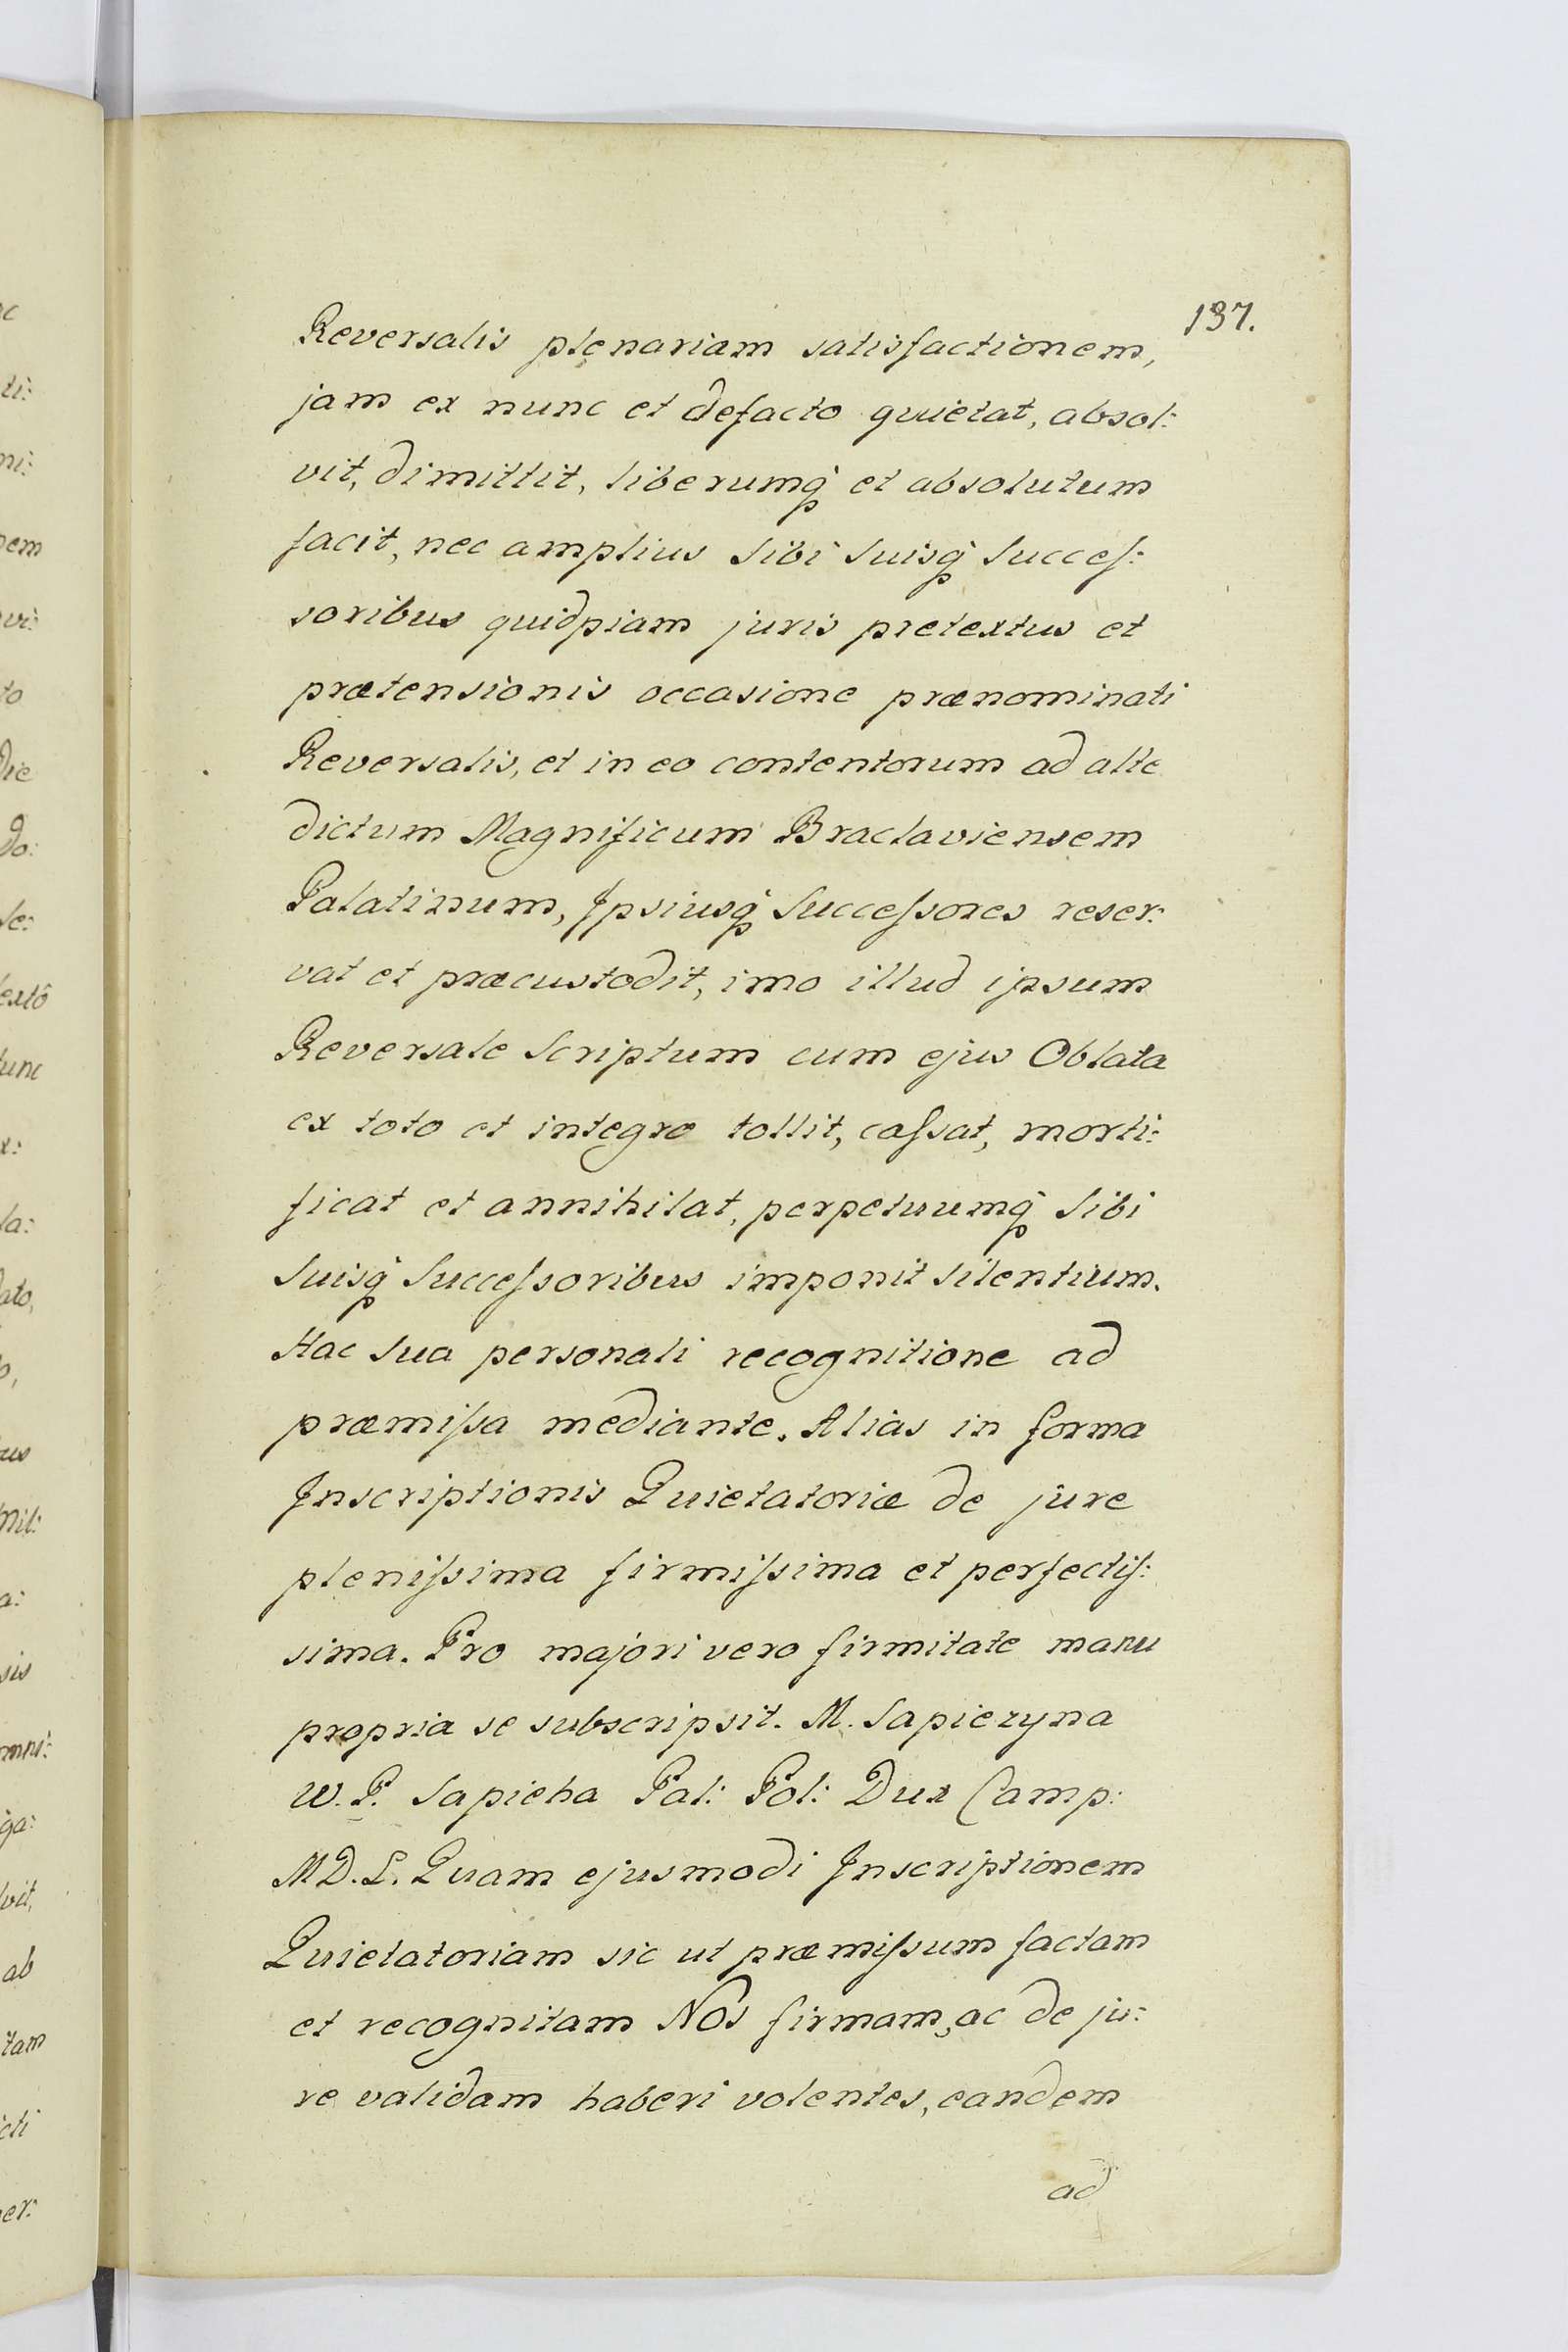 137.
Reversalis plenariam satisfactionem,
jam ex nunc et defacto quietat, absol:
vit, dimittit, liberumq̣ et absolutum
facit, nec amplius sibi suisq̣ succeſ:
soribus quidpiam juris pretextus et
prætensionis occasione prænominati
Reversalis, et in eo contentorum ad alte
dictum Magnificum Braclaviensem
Palatinum, Ipsiusq̣ Succeſsores reser:
vat et præcustodit, imo illud ipsum
Reversale Scriptum cum ejus Oblata
ex toto et integro tollit, caſsat, morti:
ficat et annihilat, perpetuumq̣ sibi
suisq̣ Succeſsoribus imponit silentium.
Hac sua personali recognitione ad
præmiſsa mediante. Alias in forma
Inscriptionis Quietatoriæ de jure
pleniſsima firmiſsima et perfectiſ:
sima. Pro majori vero firmitate manu
propria se subscripsit. M. Sapiezyna
W. P. Sapieha Pal: Pol: Dux Camp:
M D. L. Quam ejusmodi Inscriptionem
Quietatoriam sic ut præmiſsum factam
et recognitam Nos firmam, ac de ju:
re validam haberi volentes, eandem
ad